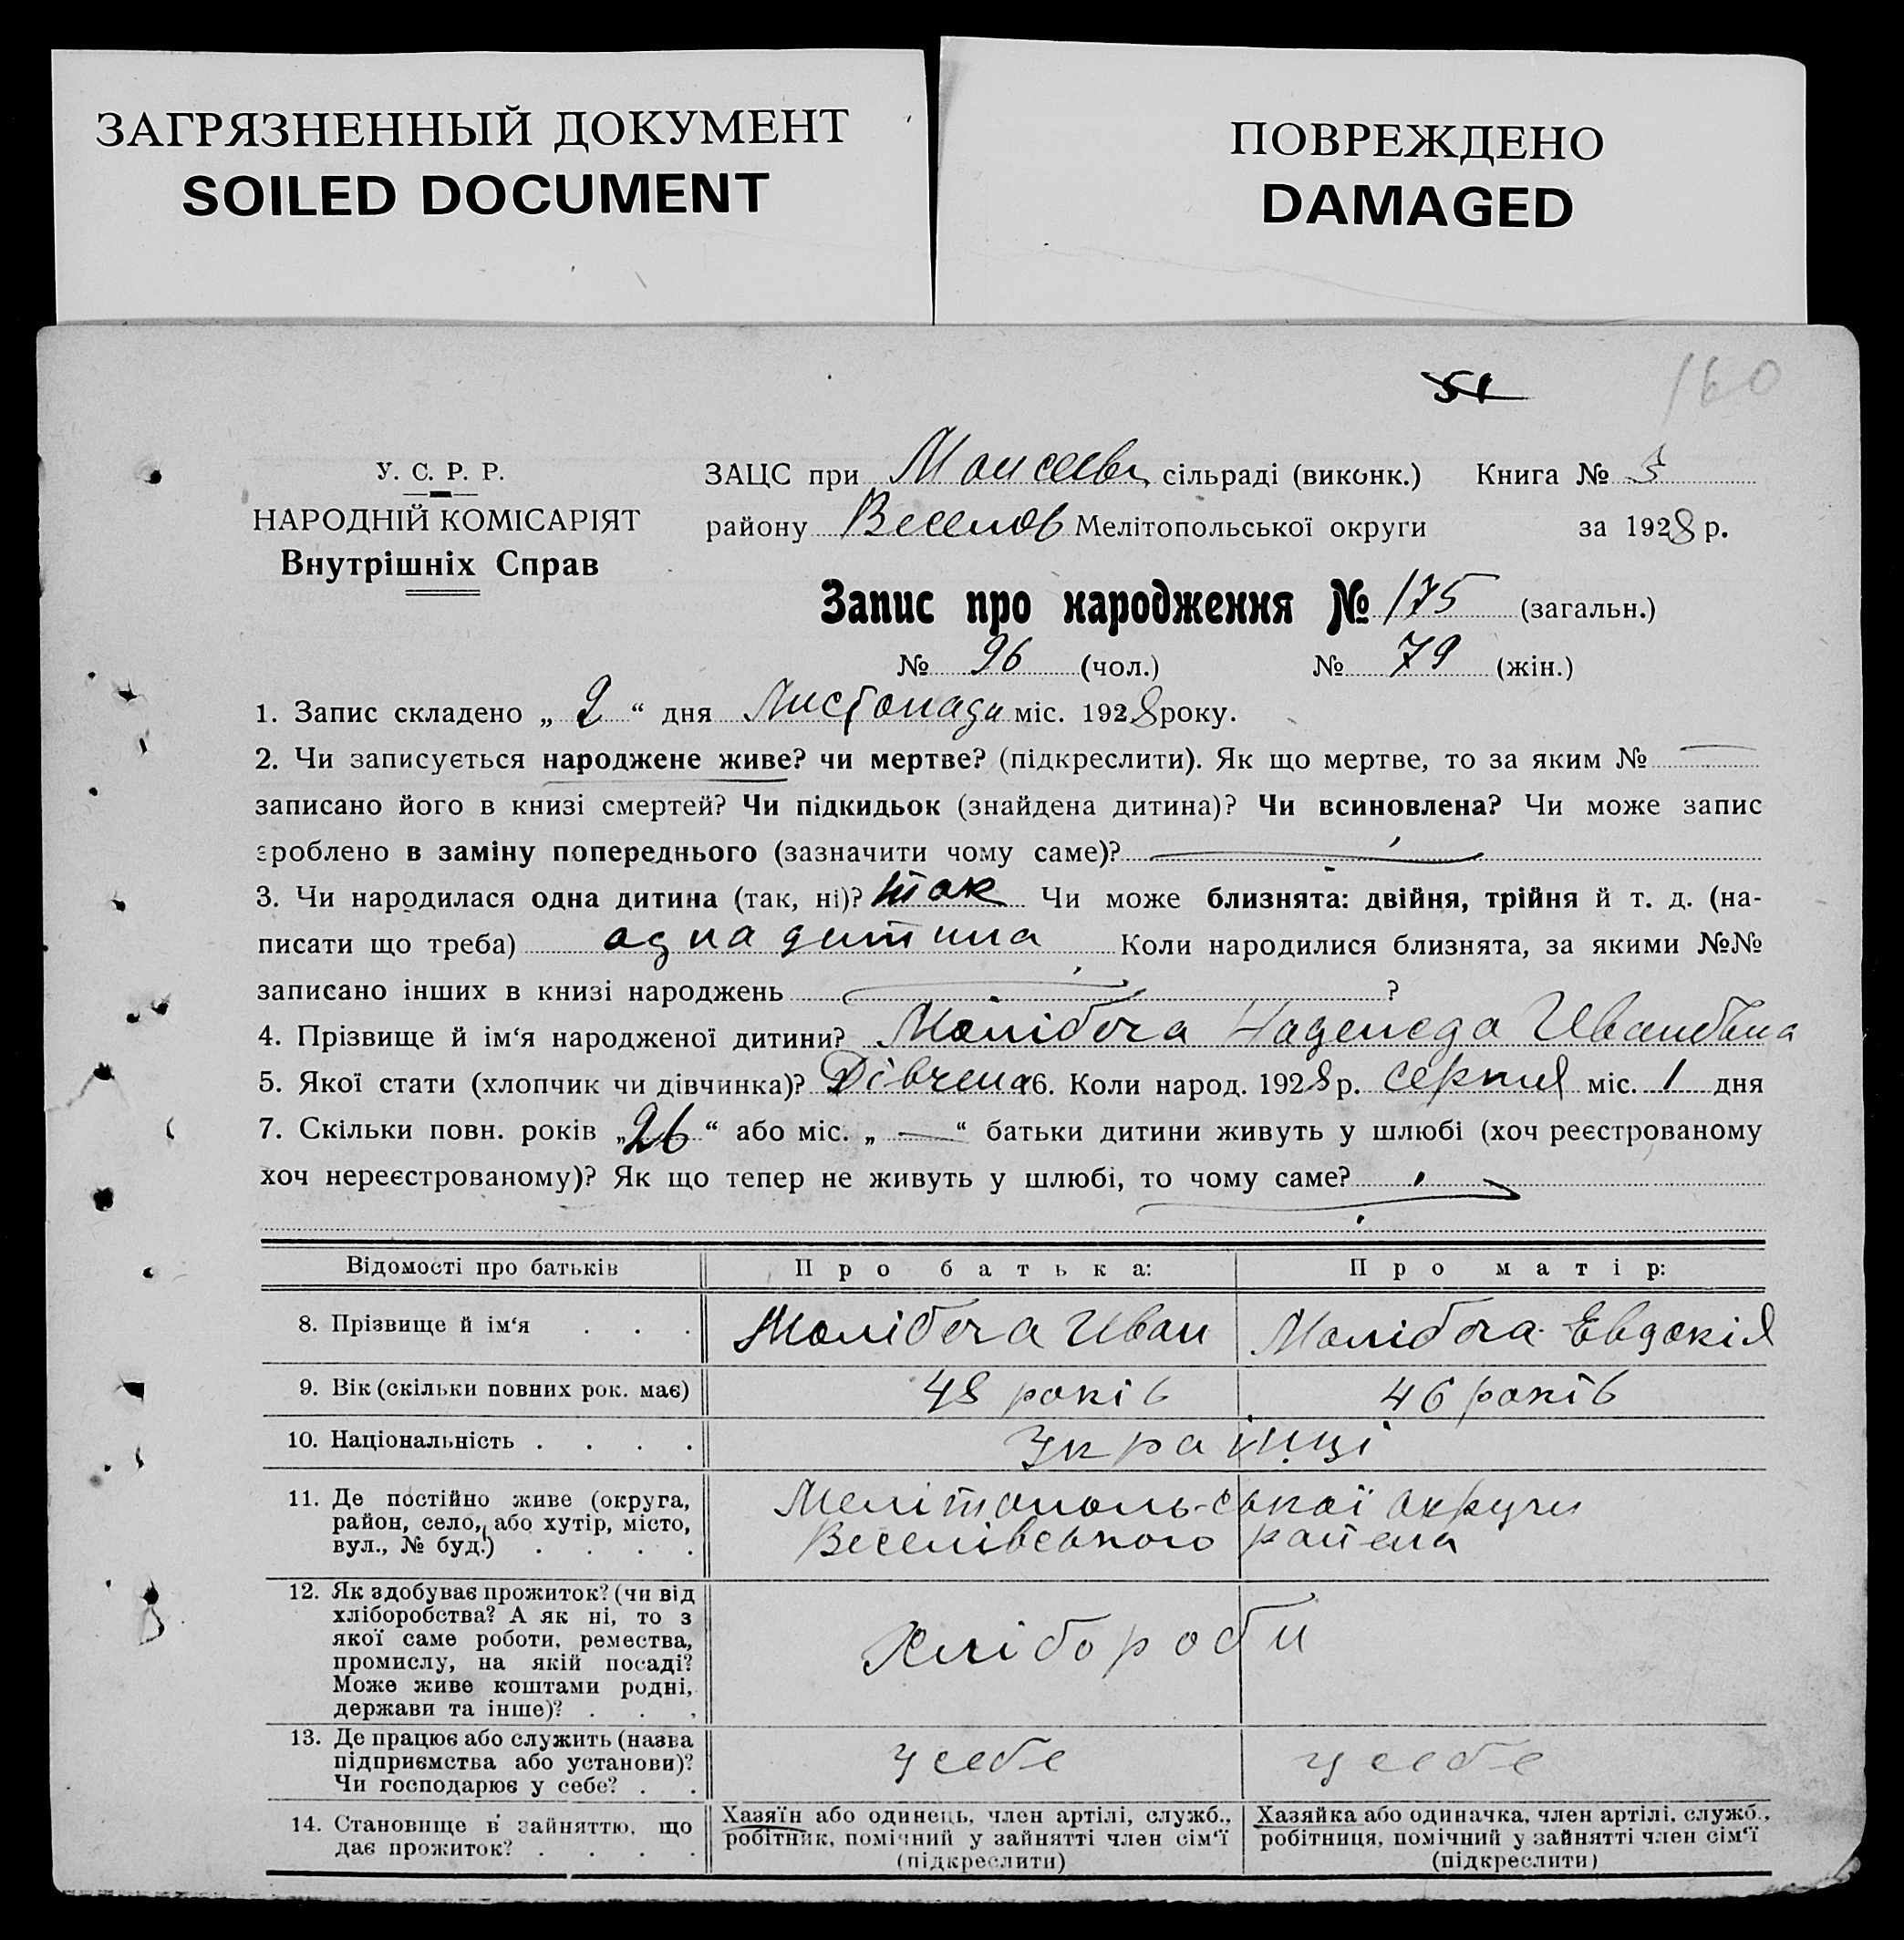 ЗАГРЯЗНЕННЫЙ ДОКУМЕНТ
SOILED DOCUMENT
ПОВРЕЖДЕНО
DAMAGED
51
160
У. С. Р. Р.
НАРОДНІЙ КОМІСАРІЯТ
Внутрішніх Справ
ЗАЦС при Моисеевк. сільраді (виконк.) Книга № 3
району Веселов Мелітопольської округи за 1928 р.
Запис про народження № 175 (загальн.)
№ 96 (чол.) № 79 (жін.)
1. Запис складено „ 2 “ дня Листопада міс. 1928 року.
2. Чи записується народжене живе? чи мертве? (підкреслити). Як що мертве, то за яким № —
записано його в книзі смертей? Чи підкидьок (знайдена дитина)? Чи всиновлена? Чи може запис
зроблено в заміну попереднього (зазначити чому саме)?
3. Чи народилася одна дитина (так, ні)? так Чи може близнята: двійня, трійня й т. д. (на-
писати що треба) одна дитина Коли народилися близнята, за якими №№
записано інших в книзі народжень ?
4. Прізвище й ім‘я народженої дитини? Молібога Надежда Ивановна
5. Якої стати (хлопчик чи дівчинка)? Дівчена 6. Коли народ. 1928 р. серпня міс. 1 дня
7. Скільки повн. років „26“ або міс. „ — “ батьки дитини живуть у шлюбі (хоч реєстрованому
хоч нереєстрованому)? Як що тепер не живуть у шлюбі, то чому саме?
Відомості про батьків Про батька: Про матір:
8. Прізвище й ім‘я . . . Молібога Иван Молібога Евдокія
9. Вік (скільки повних рок. має) 48 років 46 років
10. Національність . . . . Українці
11. Де постійно живе (округа,
район, село, або хутір, місто,
вул., № буд.) . . . .
Мелітополь-ської округи
Веселівського района
12. Як здобуває прожиток? (чи від
хліборобства? А як ні, то з
якої саме роботи, ремества,
промислу, на якій посаді?
Може живе коштами родні,
держави та інше)? . . .
Хлібороби
13. Де працює або служить (назва
підприємства або установи)?
Чи господарює у себе? . .
у себе у себе
14. Становище в зайняттю, що
дає прожиток? . . . .
Хазяїн або одинець, член артілі, служб.,
робітник, помічний у зайнятті член сім‘ї
(підкреслити)
Хазяйка або одиначка, член артілі, служб.,
робітниця, помічний у зайнятті член сім‘ї
(підкреслити)